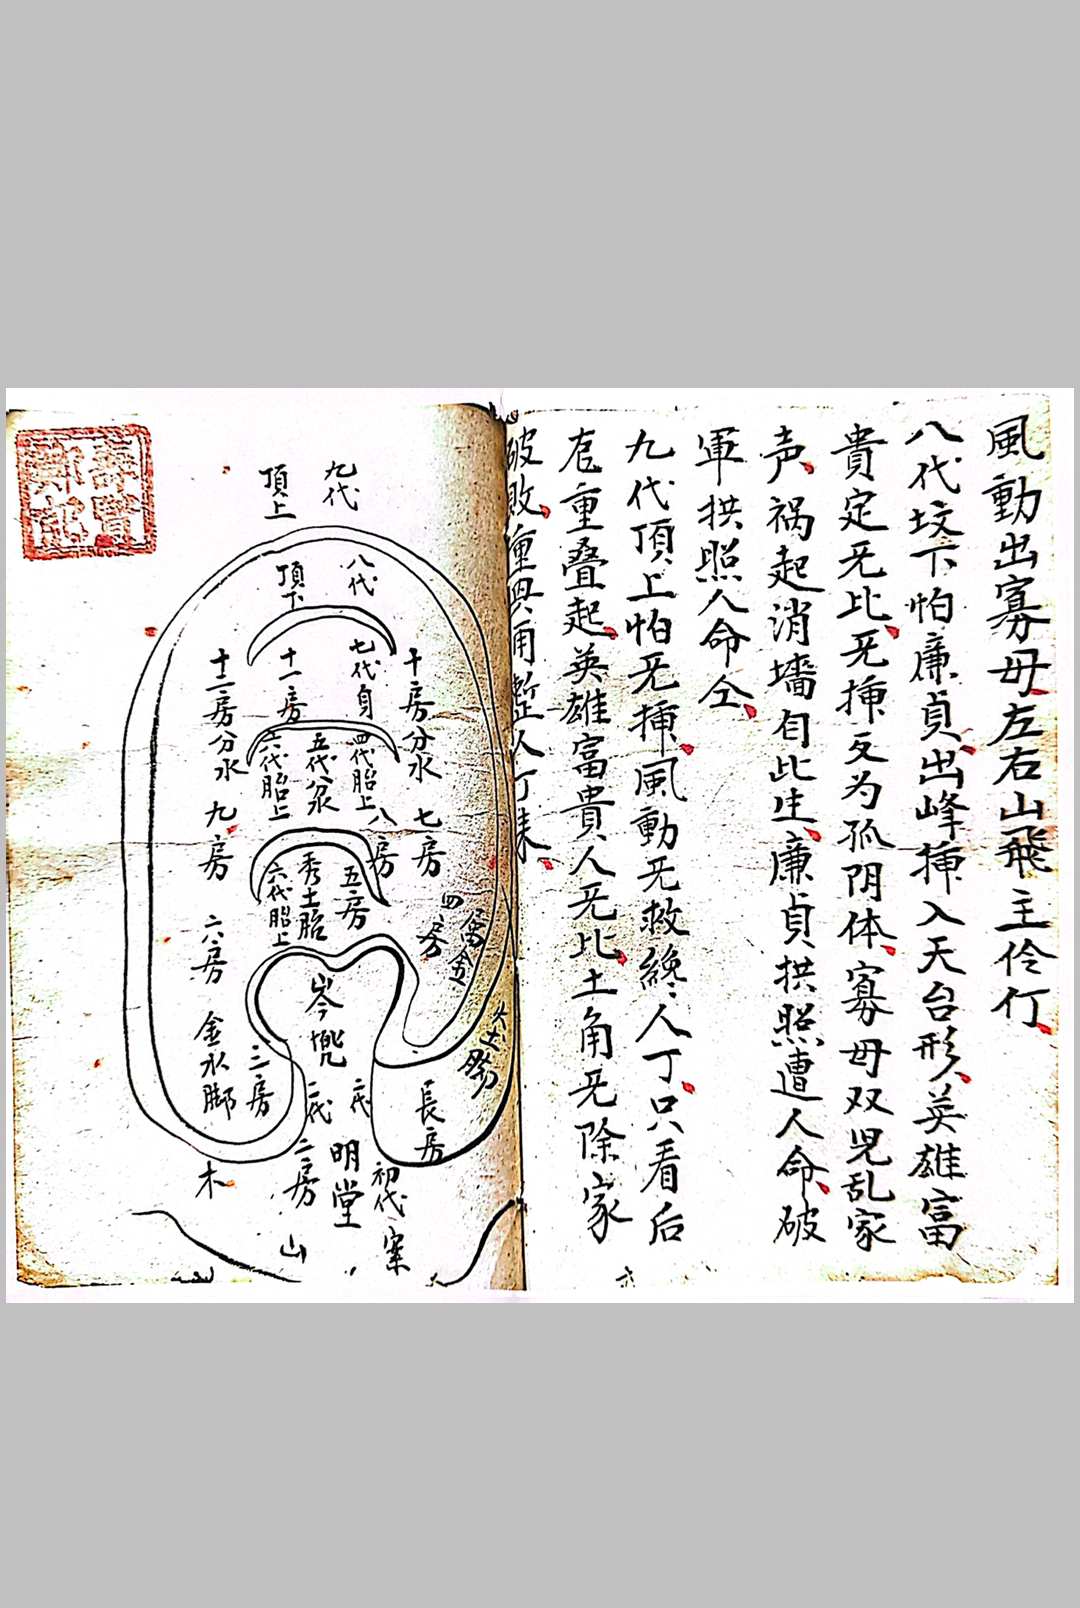 風動出寡毋左右山飛主伶仃
八代坟下怕廉貞出峰揷入天台形英雄富
貴定旡比旡揷反为孤阴体寡毋双児乱家
声祸起消墻自此生廉貞拱照遭人命破
軍拱照人命仝
九代頂上怕旡揷風動旡救絶人丁只看后
重叠起英雄富貴人旡比土角旡除家
破敗重興角人丁
九代
頂上
八代
頂下
十房分水
七代身
十一房
十二房分水
四代胎上
五代
六代胎上
七房
八房
九房
五房
秀土胎
六代胎上
四房
六房
岑兜
金水脚
三房
二代
長房
二房
明堂
初代
案
木
山